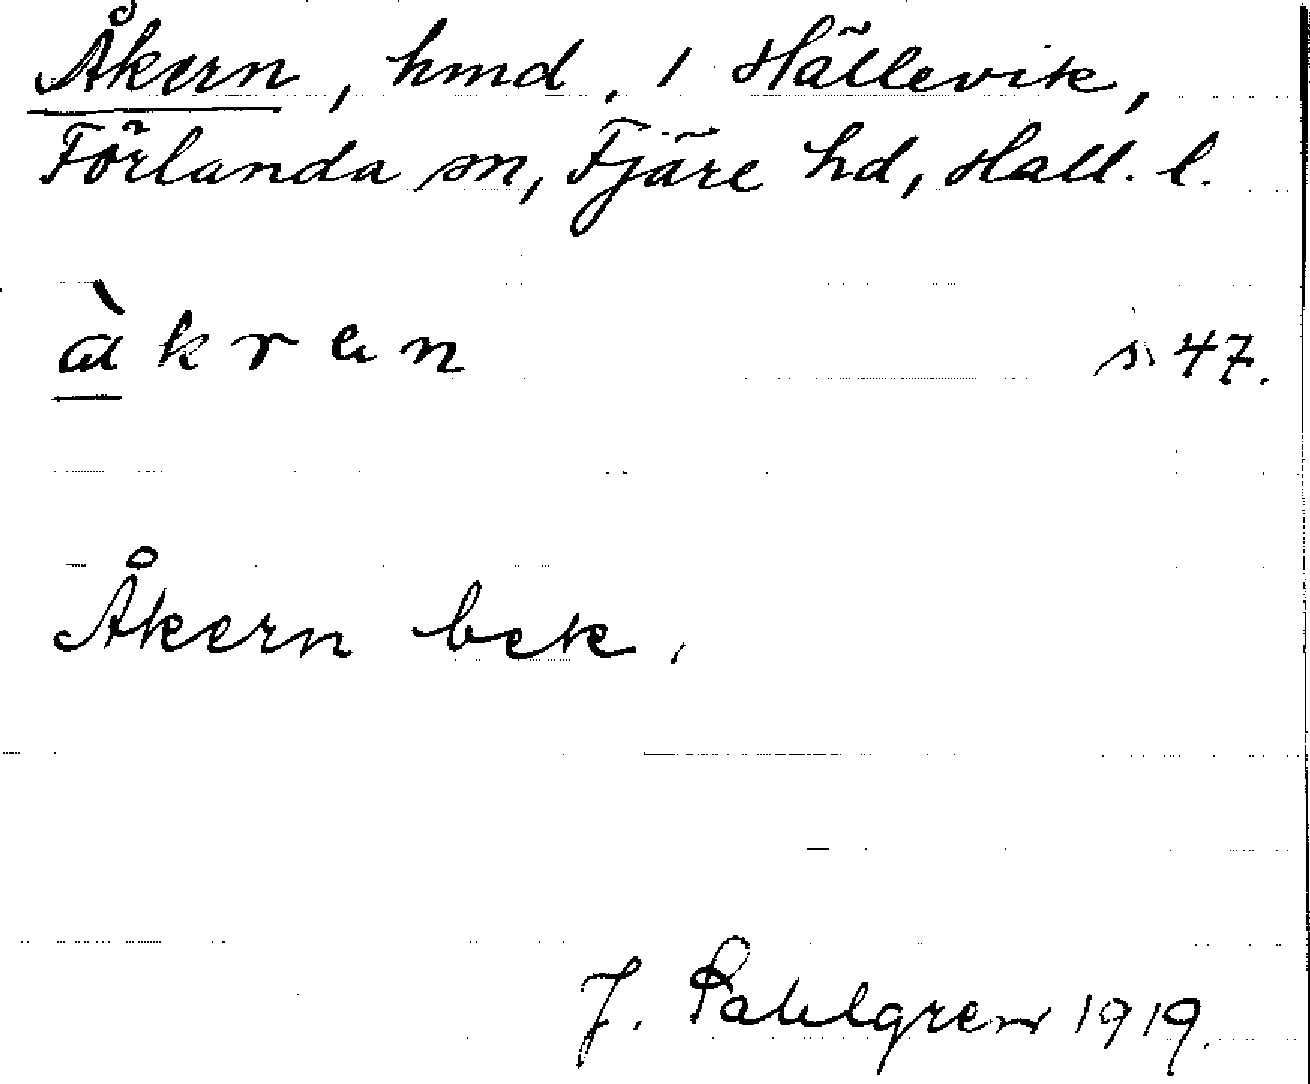 Åkern, hmd. i Hällevik,
Förlanda sn, Fjäre hd, Hall. l.
åkren s. 47.
Åkern bek.
J. Sahlgren 1919.